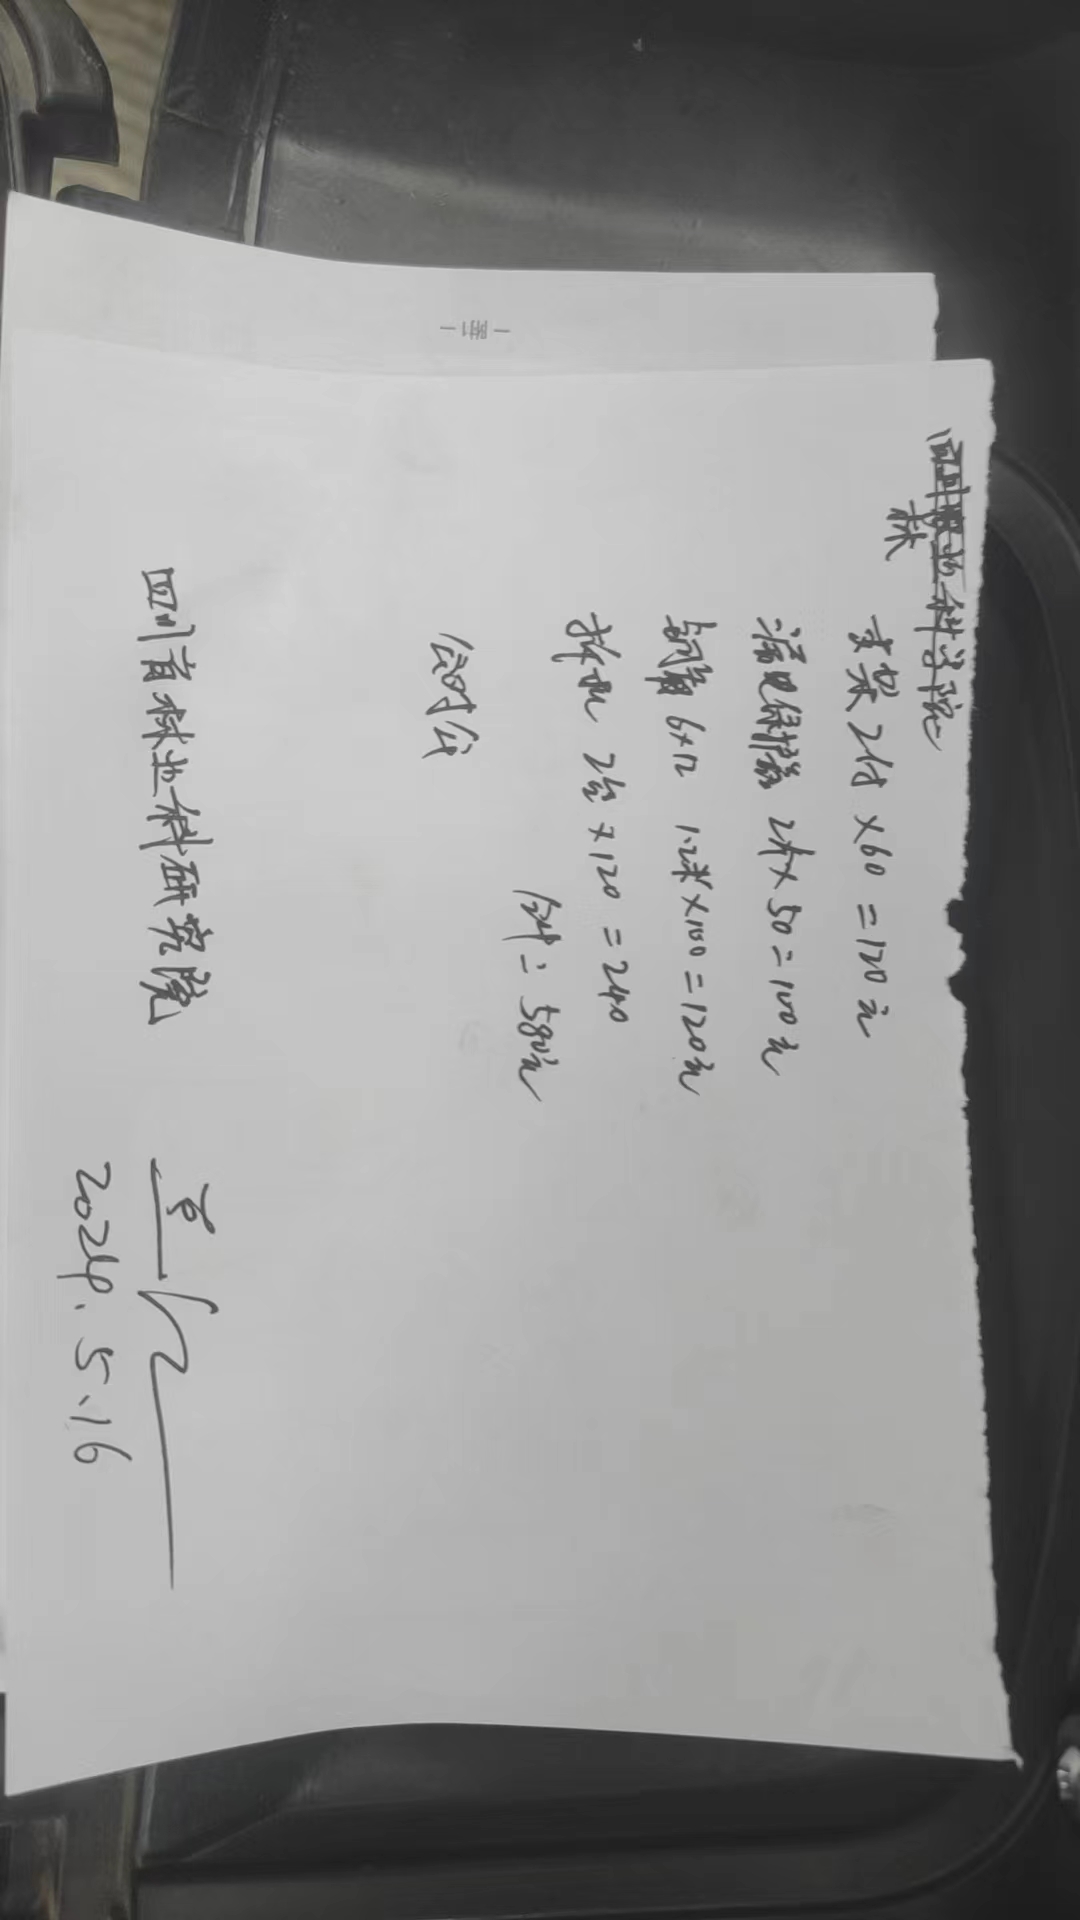 四川农业科学院
林
支架2付×60=120元
漏电保护器 2个×50=100元
铜管6×12 1.2米×100=120元
拆机 2台×120=240
合计:580元
四川省林业科研究院
2024.5.16
-附1-